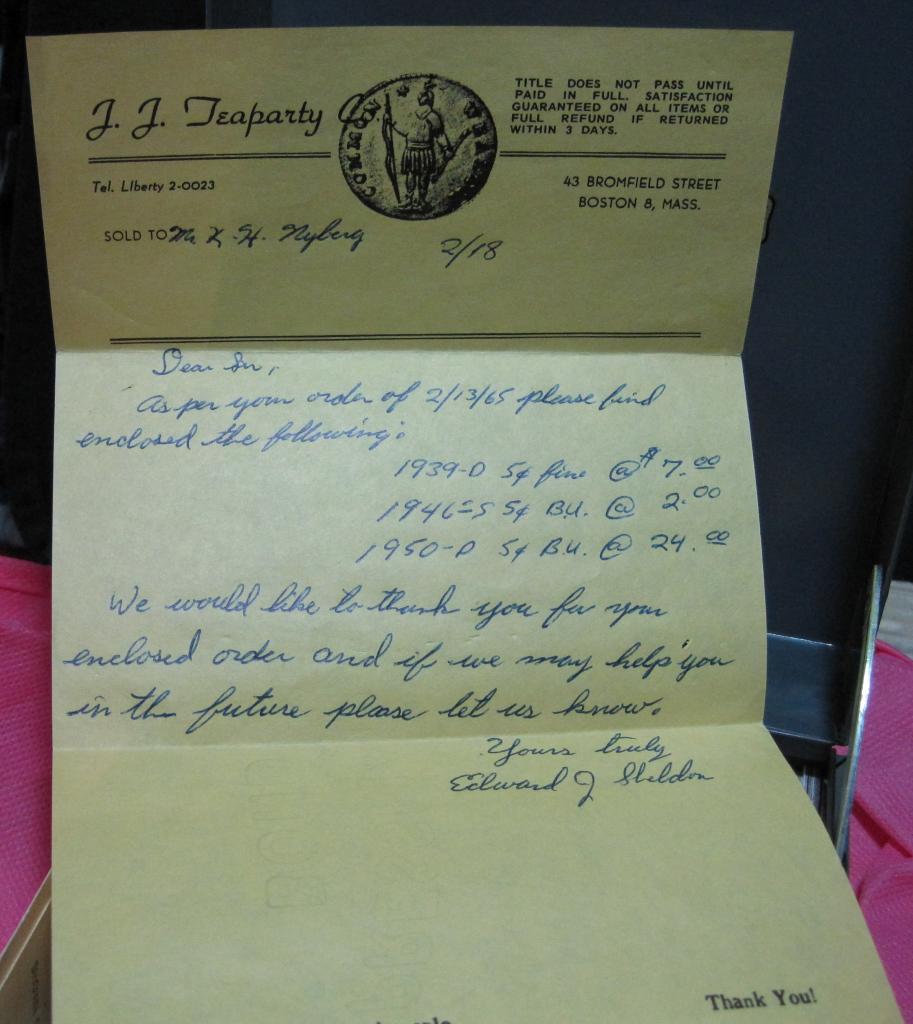 J. J. Teaparty Co.
COMMON WEAL
TITLE DOES NOT PASS UNTIL
PAID IN FULL. SATISFACTION
GUARANTEED ON ALL ITEMS OR
FULL REFUND IF RETURNED
WITHIN 3 DAYS.
Tel. LIberty 2-0023
43 BROMFIELD STREET
BOSTON 8, MASS.
SOLD TO Mr K. H. Nyberg 2/18
Dear Sir,
As per your order of 2/13/65 please find
enclosed the following:
1939-D 5¢ fine @ $7.00
1946-S 5¢ B.U. @ 2.00
1950-D 5¢ B.U. @ 24.00
We would like to thank you for your
enclosed order and if we may help you
in the future please let us know.
Yours truly
Edward J Sheldon
Thank You!